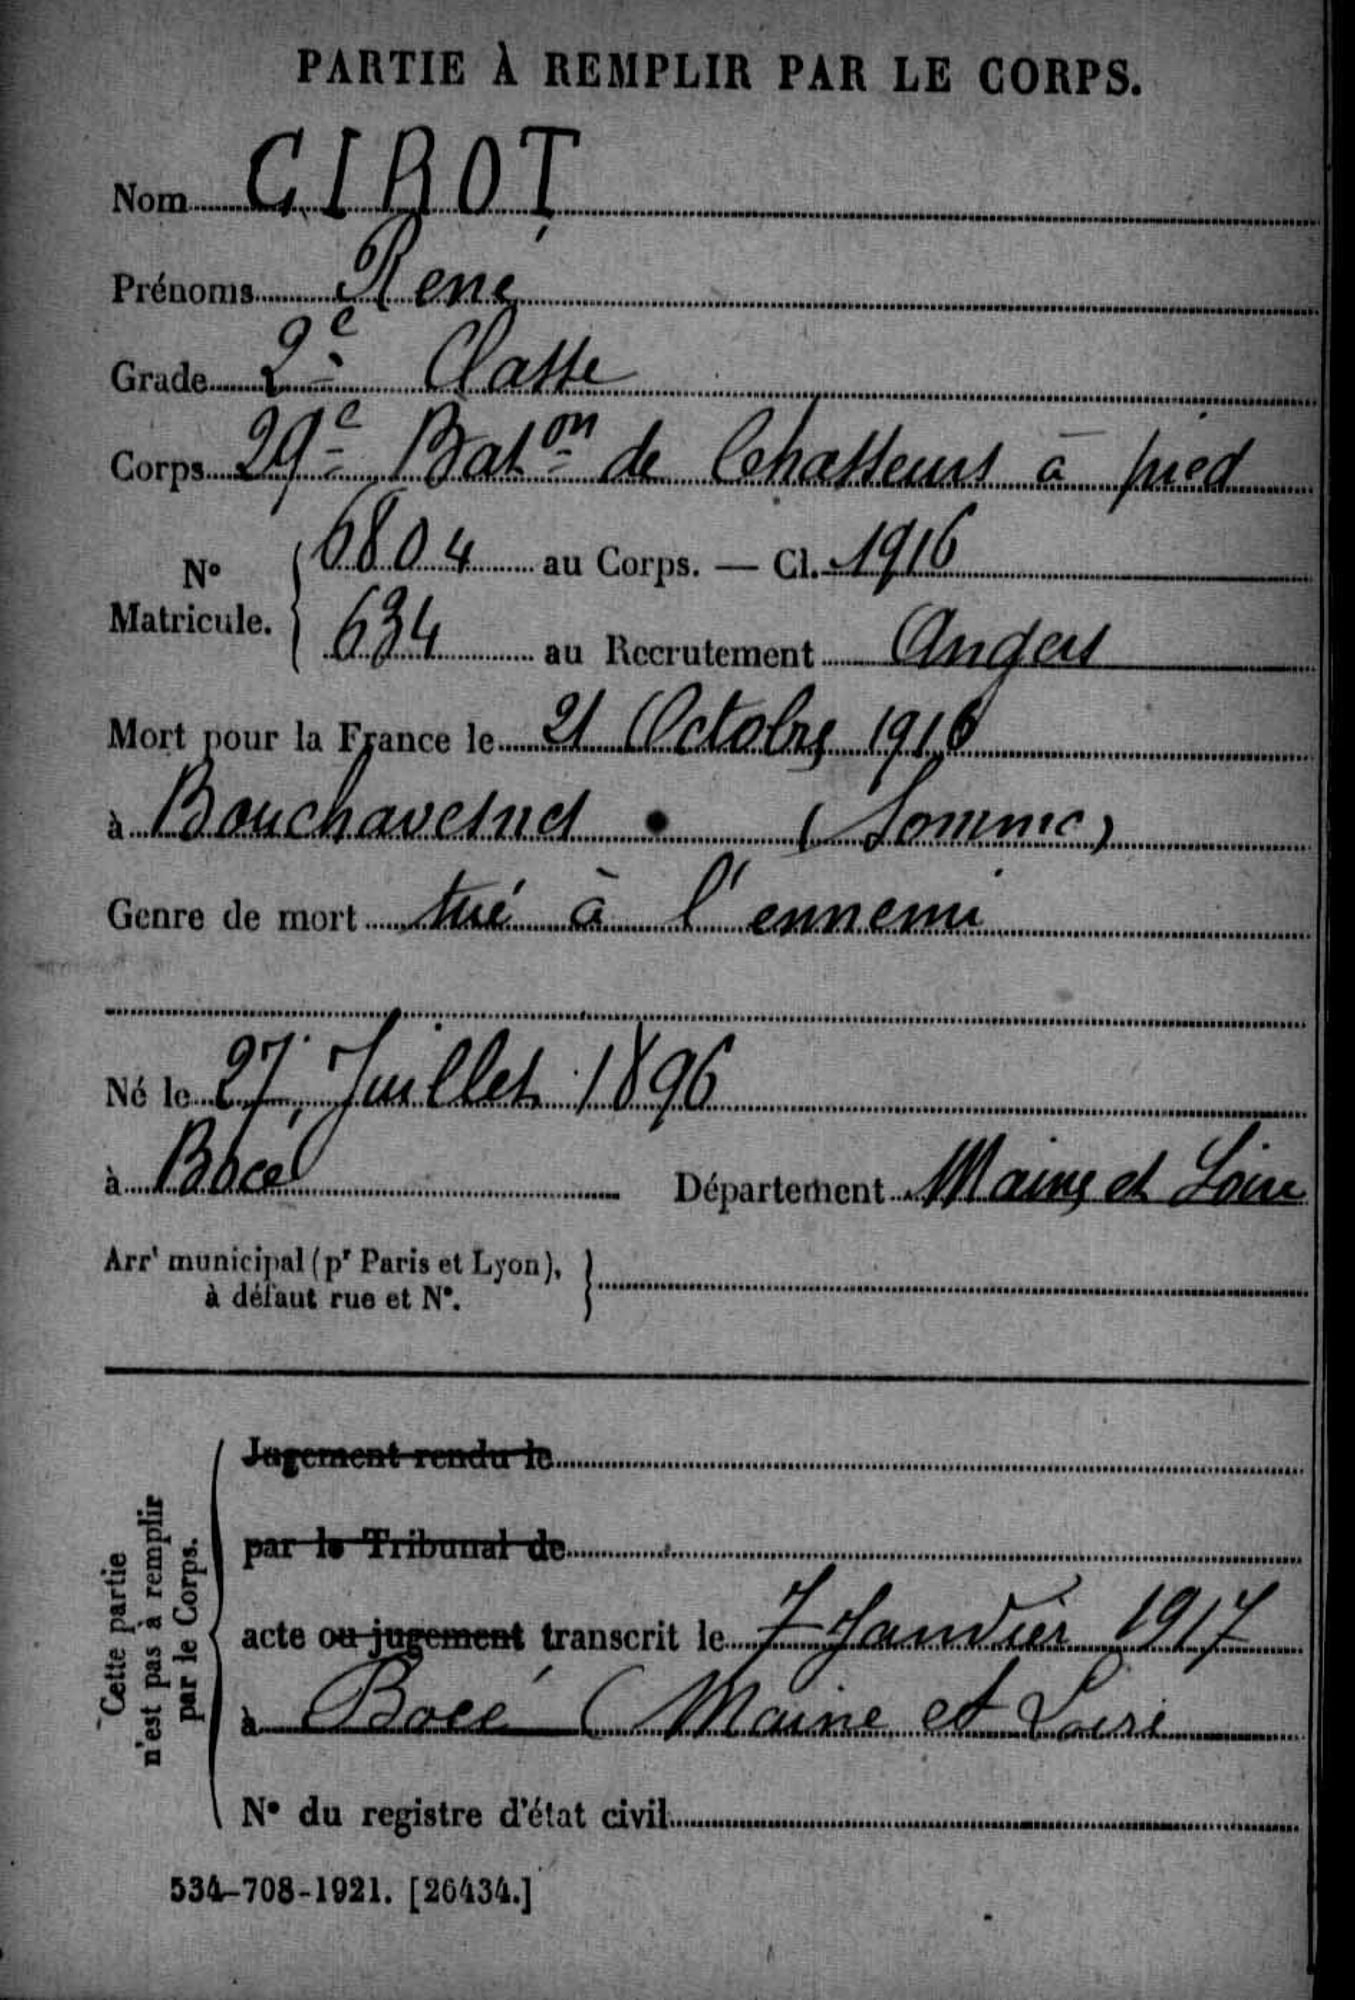 PARTIE À REMPLIR PAR LE CORPS.
Nom GIROT
Prénoms René
Grade 2e Classe
Corps 29e Baton de Chasseurs à pied
No Matricule. 6804 au Corps. — Cl. 1916
634 au Recrutement Angers
Mort pour la France le 21 Octobre 1916
à Bouchavesnes (Somme)
Genre de mort tué à l'ennemi
Né le 27 Juillet 1896
à Bocé Département Maine et Loire
Arrt municipal (pr Paris et Lyon),
à défaut rue et N°.
Cette partie n'est pas à remplir par le Corps.
Jugement rendu le
par le Tribunal de
acte ou jugement transcrit le 7 Janvier 1917
à Bocé (Maine et Loire
N° du registre d'état civil
534-708-1921. [26434.]